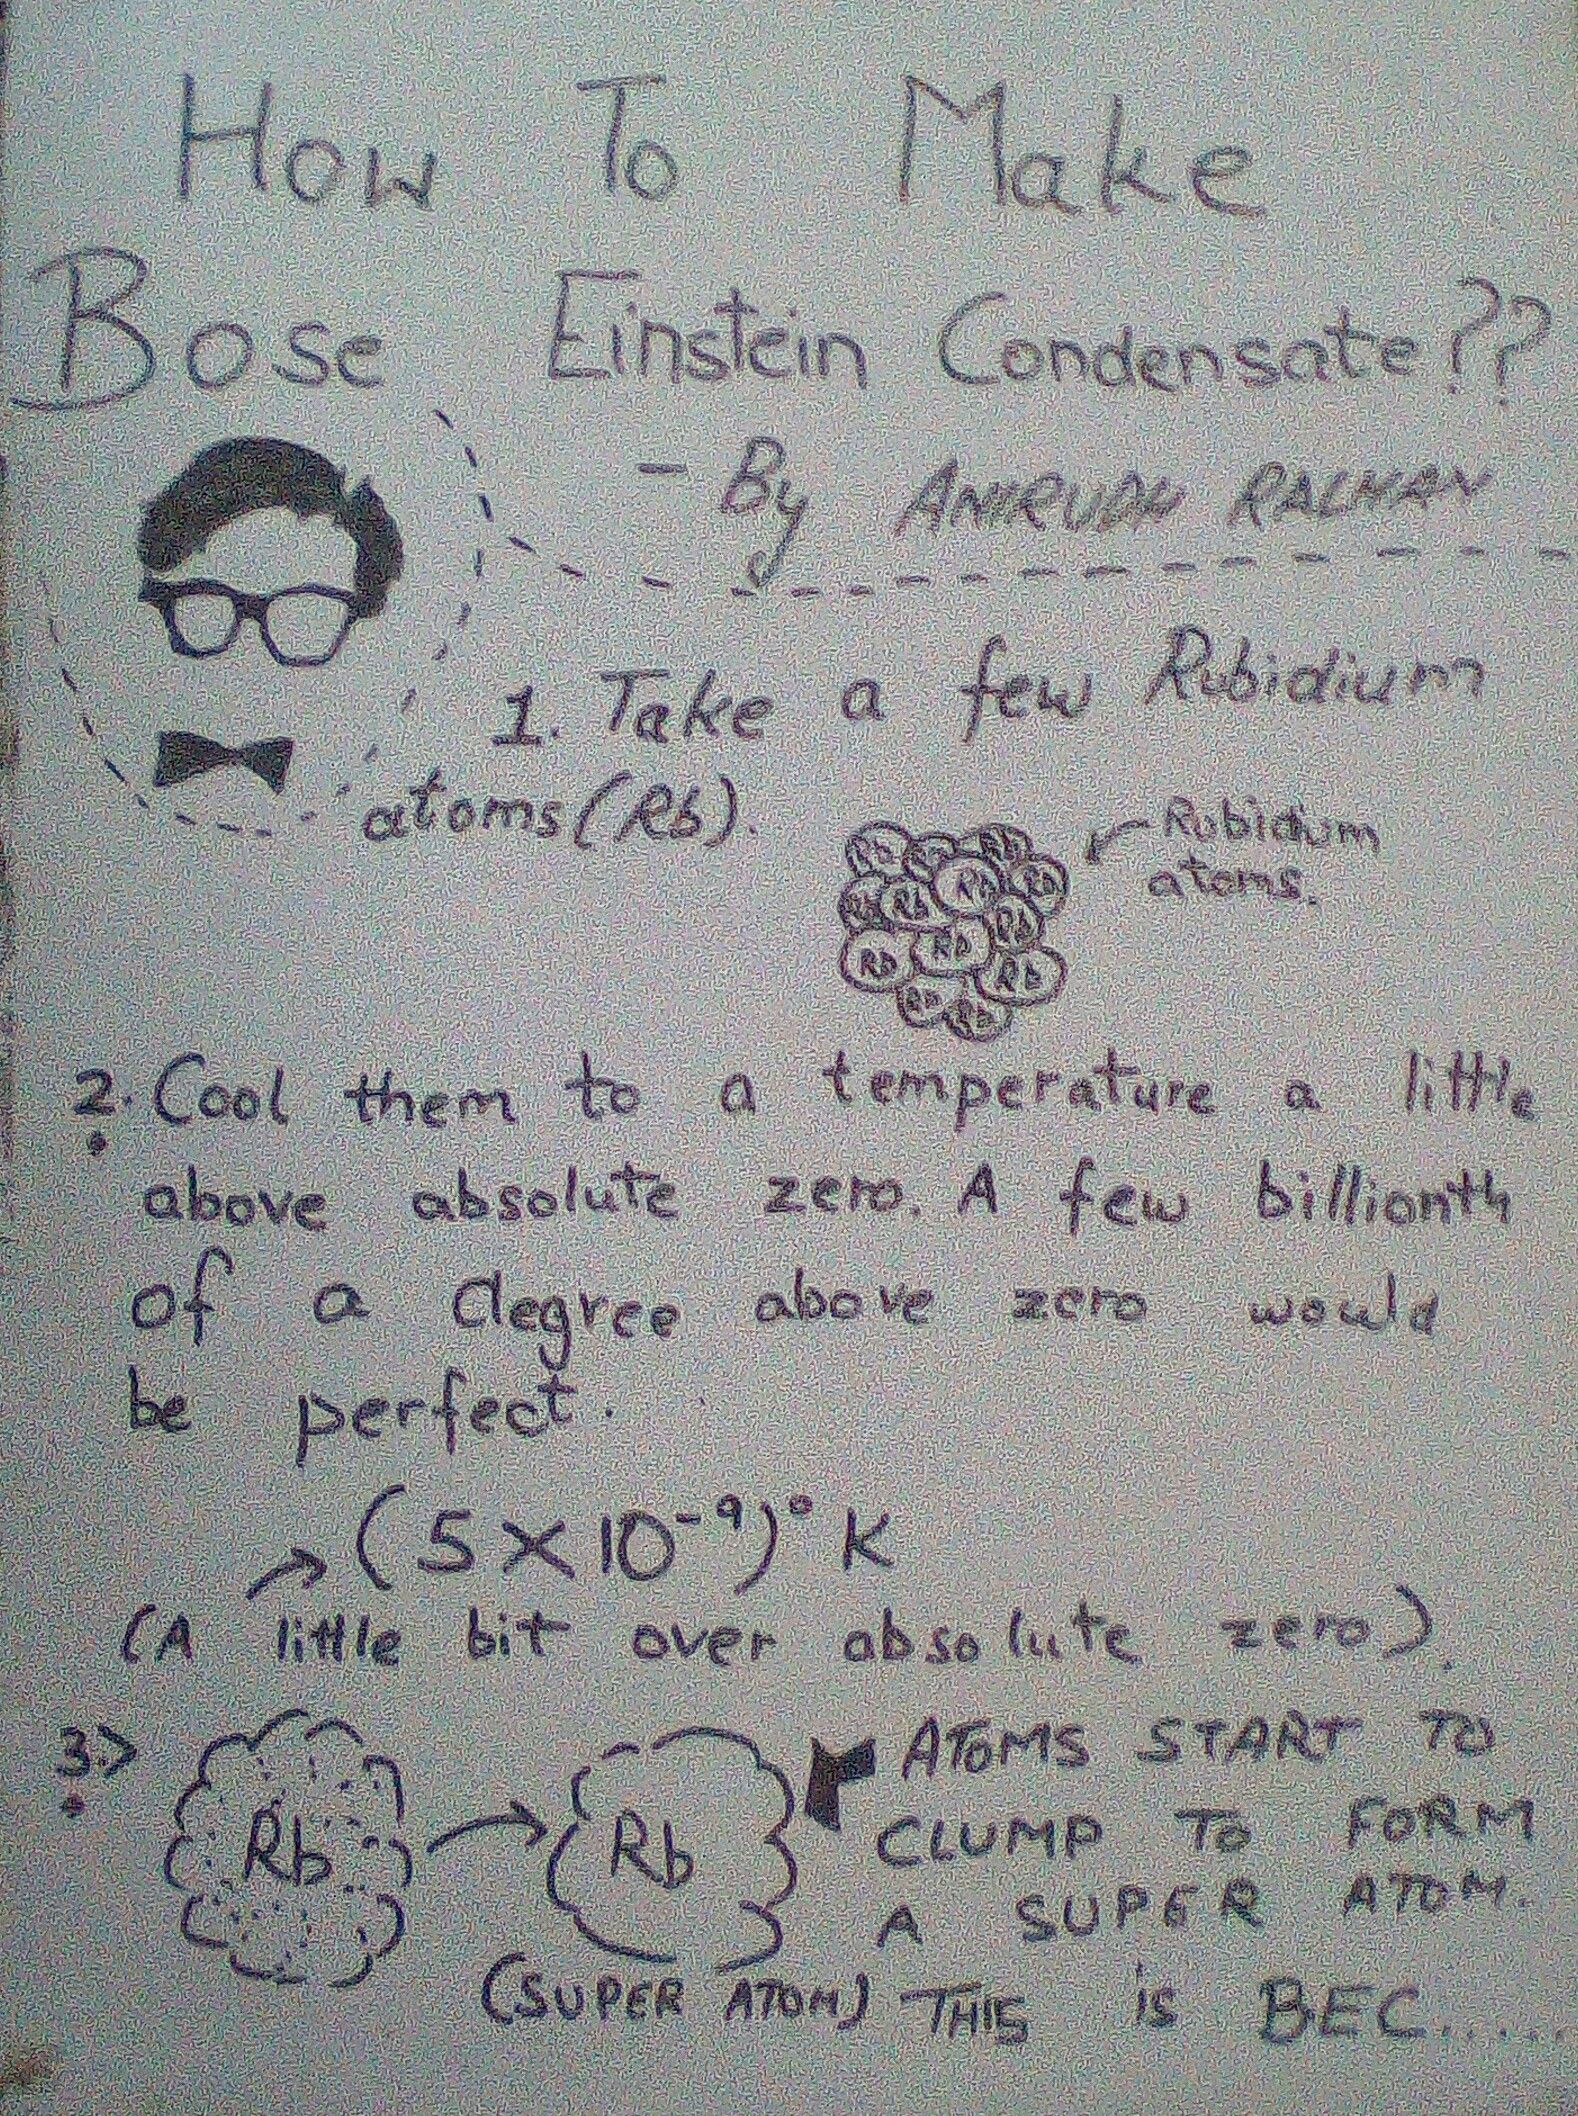 How To Make
Bose Einstein Condensate??
- By
1. Take a few Rubidium
atoms(Rb).
Rubidium
atoms.
Rb Rb Rb
Rb Rb
Rb Rb Rb
Rb Rb Rb
Rb Rb
2. Cool them to a temperature a little
above absolute zero. A few billionth
of a degree above zero would
be perfect.
(5×10⁻⁹)° K
(A little bit over absolute zero).
3.> ATOMS START TO
CLUMP TO FORM
Rb Rb
A SUPER ATOM.
(SUPER ATOM) THIS is BEC......